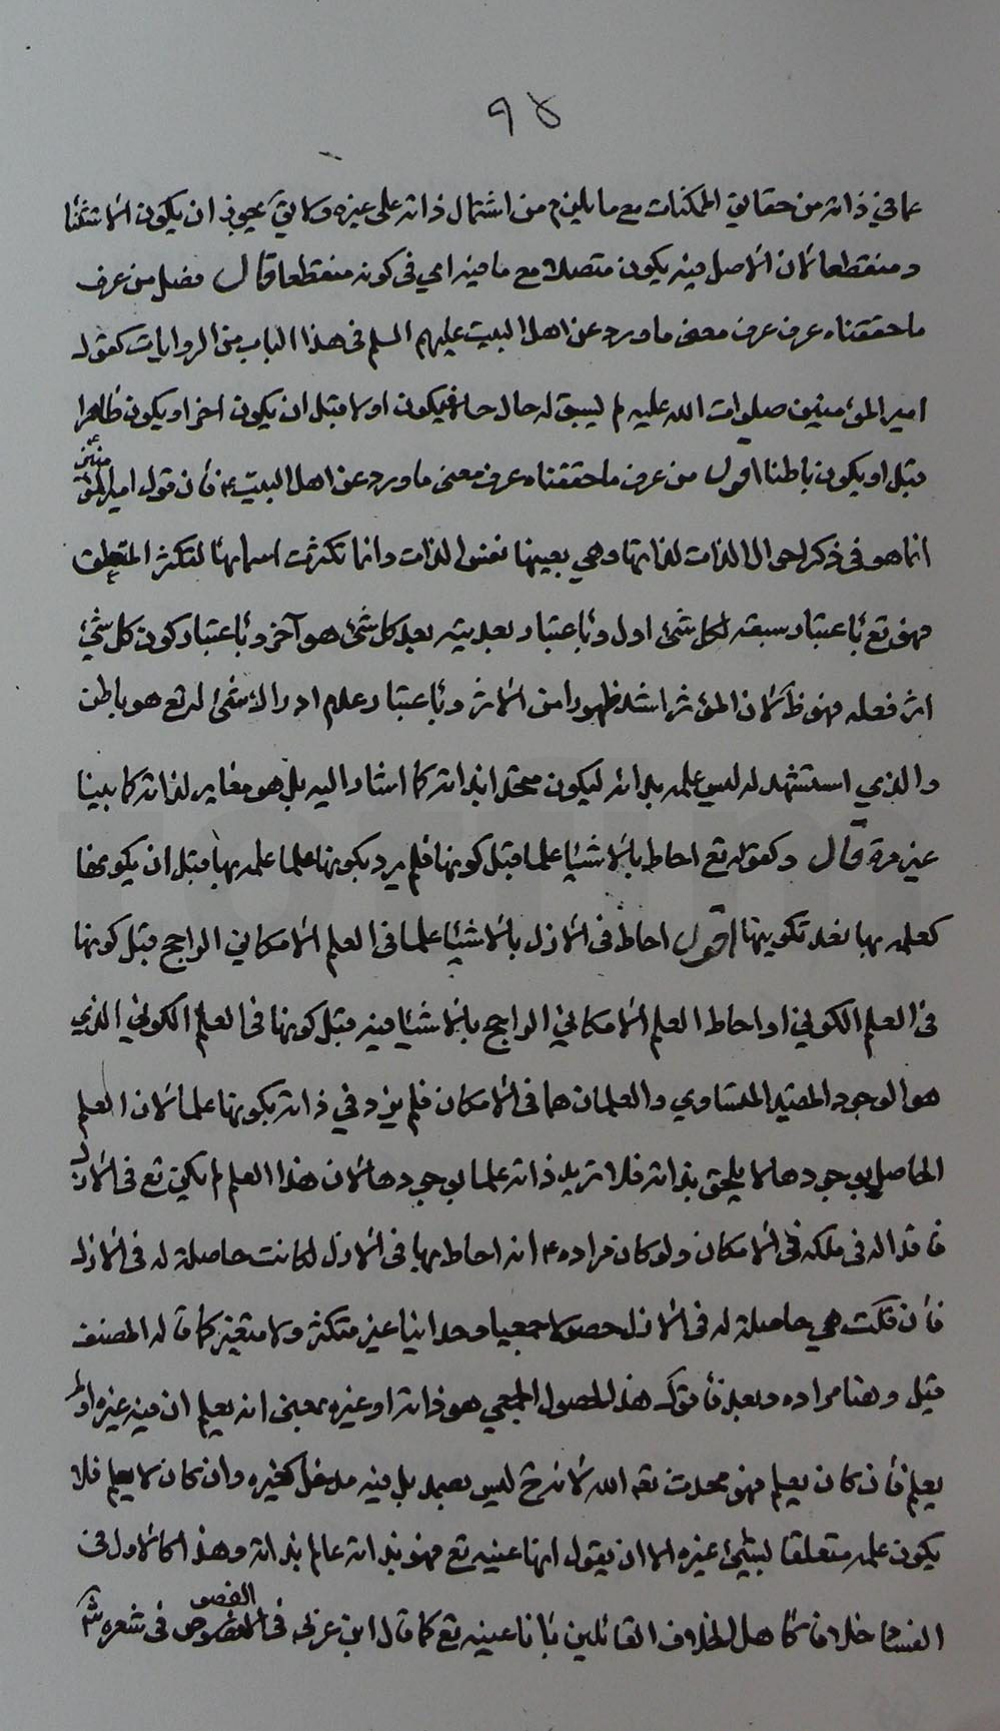 ٩٤
عما في ذاته من حقايق الممكنات مع ما يلزم من اشتمال ذاته على غيره ولا يجوز ان يكون الاستثنا
ومنقطعا لان الاصل فيه يكون متصلا مع ما فيه اي في كونه منقطعا قال فصل من عرف
ما حققناه عرف عرف معنى ما ورد عن اهل البيت عليهم السلم في هذا الباب من الروايات كقول
امير المؤمنين صلوات الله عليه لم يسبق له حال حالا فيكون اولا قبل ان يكون اخرا ويكون ظاهرا
قبل ان يكون باطنا اقول من عرف ما حققناه عرف معنى ما ورد عن اهل البيت ع فأن قول امير المؤمنين
انما هو في ذكر احوال الذات لذاتها وهي بعينها نفس الذات وانما تكثرت اسمائها لتكثر المتعلق
فهو تع بأعتبار سبقه لكل شئ اول وبأعتبار بعديته بعد كل شئ هو آخر وبأعتبار كون كل شئ
اثر فعله فهو ظ لان المؤثر اشد ظهورا من الاثر وبأعتبار عدم ادراك شئ له تع هو باطن
والذي استشهد له ليس علمه بذاته ليكون متحدا بذاته كما اشار اليه بل هو مغاير لذاته كما بينا
غير مرة قال وكقوله تع احاط بالاشيا علما قبل كونها فلم يزدد بكونها علما علمه بها قبل ان يكونها
كعلمه بها بعد تكوينها اقول احاط في الازل بالاشيا علما في العلم الامكاني الراجح قبل كونها
في العلم الكوني او احاط العلم الامكاني الراجح بالاشيا فيه قبل كونها في العلم الكوني الذي
هو الوجود المقيد المتساوي والعلمان هما في الامكان فلم يزد في ذاته بكونها علما لان العلم
الحاصل بوجودها لا يلحق بذاته فلا تزيد ذاته علما بوجودها لان هذا العلم لم يكن تع في الازل
فاقدا له في ملكه في الامكان ولو كان مراده ع انه احاط بها في الازل لكانت حاصلة له في الازل
فأن قلت هي حاصلة له في الازل حصولا جمعيا وحدانيا غير متكثر ولا متغير كما قاله المصنف
قبل وهنا مراده وبعد فأقول هذا الحصول الجمعي هو ذاته او غيره بمعنى انه يعلم ان فيه غيره او لم
يعلم فأن كان يعلم فهو محدث تع الله لانه ح ليس بصمد بل فيه مدخل لغيره وان كان لا يعلم فلا
يكون علمه متعلقا لشئ غيره الا ان يقول انها عينه تع فهو بذاته عالم بذاته وهذا كالاول في
الفساد خلافا لاهل الخلاف القائلين بأنا عينه تع كما قال ابن عربي في الفصوص في شعره